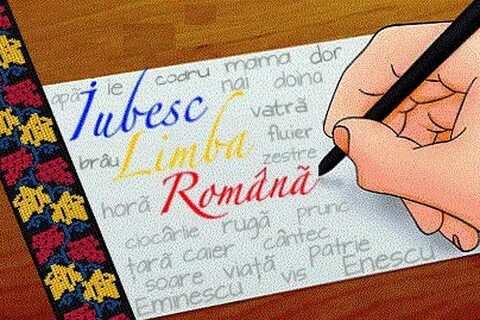 apă le codru mama dor
nai doina
Iubesc
vatră
Limba
fluier
brâu
zestre
Română
horă rugă prunc
ciocârlie
țară caier cântec
soare viață patrie
Eminescu vis Enescu